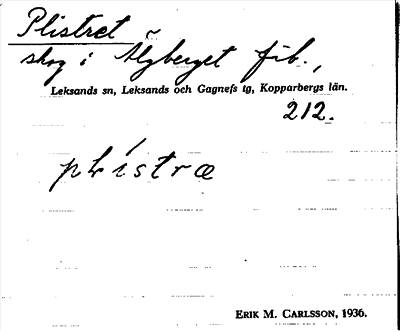 Plistret
skog i Älgberget fäb.,
Leksands sn, Leksands och Gagnefs tg, Kopparbergs län.
212.
plístræ
ERIK M. CARLSSON, 1936.